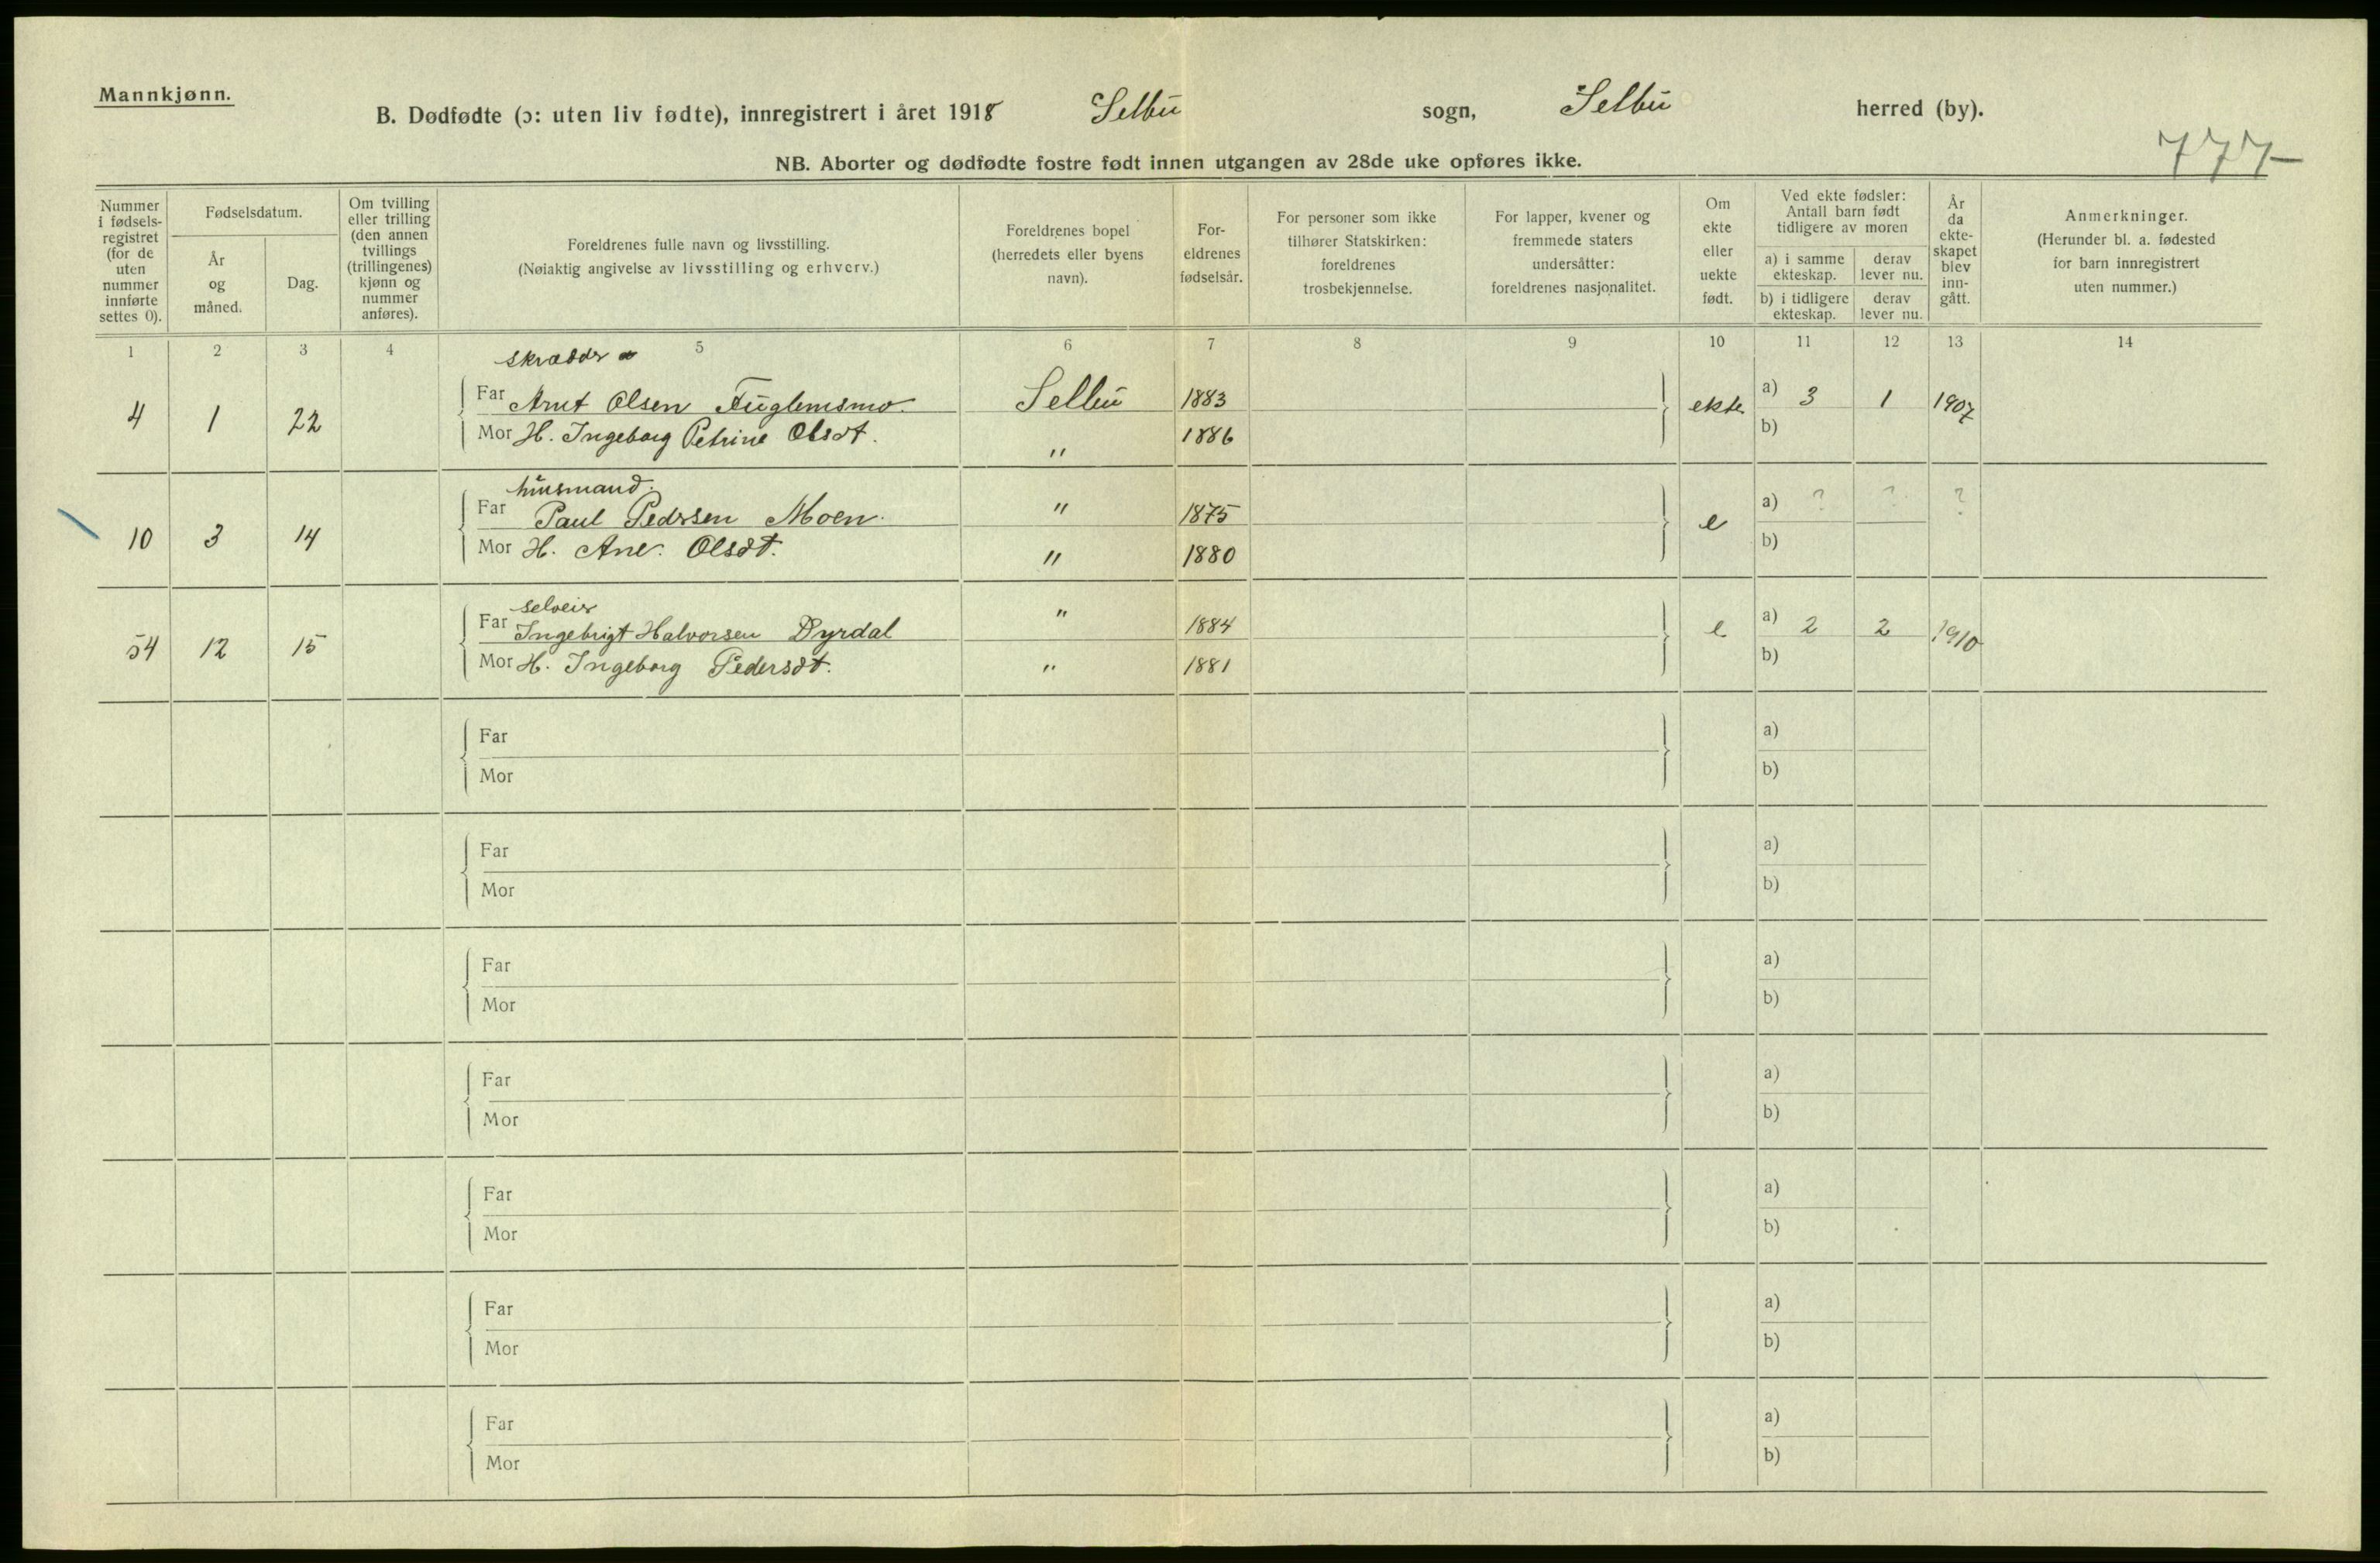 Mannkjønn.
B. Dødfødte (ɔ: uten liv fødte), innregistrert i året 1918 Selbu sogn, Selbu herred (by).
777
NB. Aborter og dødfødte fostre født innen utgangen av 28de uke opføres ikke.
Nummer i fødsels-registret (for de uten nummer innførte settes 0).
Fødselsdatum.
År og måned.
Dag.
Om tvilling eller trilling (den annen tvillings (trillingenes) kjønn og nummer anføres).
Foreldrenes fulle navn og livsstilling.
(Nøiaktig angivelse av livsstilling og erhverv.)
Foreldrenes bopel (herredets eller byens navn).
For-eldrenes fødselsår.
For personer som ikke tilhører Statskirken: foreldrenes trosbekjennelse.
For lapper, kvener og fremmede staters undersåtter: foreldrenes nasjonalitet.
Om ekte eller uekte født.
Ved ekte fødsler: Antall barn født tidligere av moren
a) i samme ekteskap.
derav lever nu.
b) i tidligere ekteskap.
derav lever nu.
År da ekte-skapet blev inn-gått.
Anmerkninger.
(Herunder bl. a. fødested for barn innregistrert uten nummer.)
1 2 3 4 5 6 7 8 9 10 11 12 13 14
skrædder
4 1 22 Far Arnt Olsen Fuglemsmo. Selbu 1883 ekte a) 3 1 1907
Mor H. Ingeborg Petrine Olsdt. " 1886 b)
husmand.
10 3 14 Far Paul Pedersen Moen. " 1875 e a) ? ? ?
Mor H. Ane Olsdt. " 1880 b)
selveier
54 12 15 Far Ingebrigt Halvorsen Dyrdal " 1884 e. a) 2 2 1910
Mor H. Ingeborg Pedersdt. " 1881 b)
Far a)
Mor b)
Far a)
Mor b)
Far a)
Mor b)
Far a)
Mor b)
Far a)
Mor b)
Far a)
Mor b)
Far a)
Mor b)